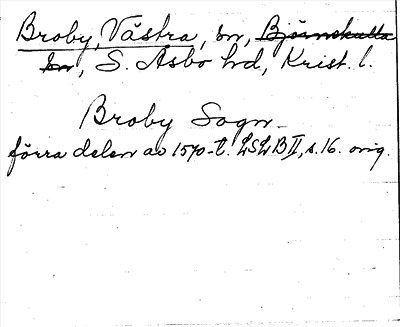 Broby, Västra, sn, Björnekulla
sn, S. Åsbo hd, Krist. l.
Broby Sogn
förra delen av 1570-t. LSLB II, s. 16. orig.